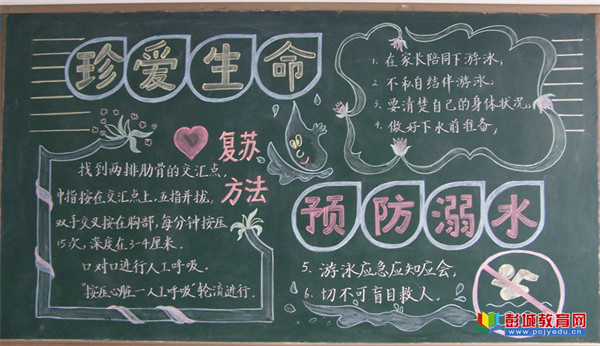 珍爱生命
1. 在家长陪同下游泳，
2. 不私自结伴游泳，
3. 要清楚自己的身体状况，
4. 做好下水前准备，
复苏
方法
找到两排肋骨的交汇点，
中指按在交汇点上，五指并拢，
双手交叉按在胸部，每分钟按压
15次，深度在3-4厘米。
口对口进行人工呼吸。
"按压心脏—人工呼吸"轮流进行。
预防溺水
5. 游泳应急应知应会，
6. 切不可盲目救人。
彭城教育网
www.pcjyedu.cn